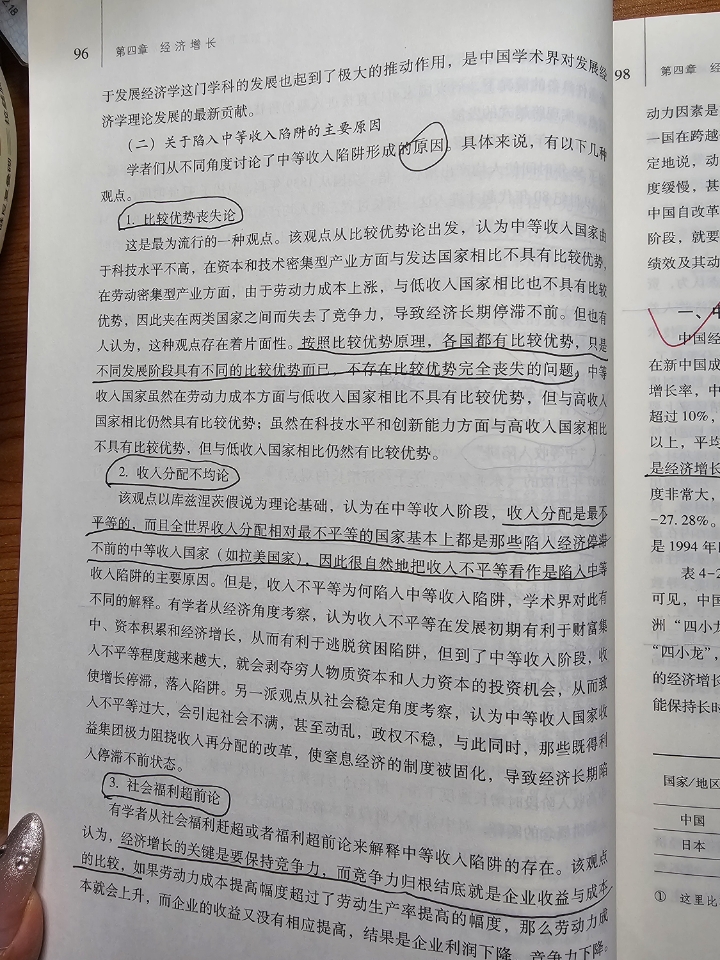 96 第四章 经济增长
于发展经济学这门学科的发展也起到了极大的推动作用，是中国学术界对发展经
济学理论发展的最新贡献。
（二）关于陷入中等收入陷阱的主要原因
学者们从不同角度讨论了中等收入陷阱形成的原因。具体来说，有以下几种
观点。
1. 比较优势丧失论
这是最为流行的一种观点。该观点从比较优势论出发，认为中等收入国家由
于科技水平不高，在资本和技术密集型产业方面与发达国家相比不具有比较优势，
在劳动密集型产业方面，由于劳动力成本上涨，与低收入国家相比也不具有比较
优势，因此夹在两类国家之间而失去了竞争力，导致经济长期停滞不前。但也有
人认为，这种观点存在着片面性。按照比较优势原理，各国都有比较优势，只是
不同发展阶段具有不同的比较优势而已，不存在比较优势完全丧失的问题。中等
收入国家虽然在劳动力成本方面与低收入国家相比不具有比较优势，但与高收入
国家相比仍然具有比较优势；虽然在科技水平和创新能力方面与高收入国家相比
不具有比较优势，但与低收入国家相比仍然有比较优势。
2. 收入分配不均论
该观点以库兹涅茨假说为理论基础，认为在中等收入阶段，收入分配是最不
平等的，而且全世界收入分配相对最不平等的国家基本上都是那些陷入经济停滞
不前的中等收入国家（如拉美国家），因此很自然地把收入不平等看作是陷入中等
收入陷阱的主要原因。但是，收入不平等为何陷入中等收入陷阱，学术界对此有
不同的解释。有学者从经济角度考察，认为收入不平等在发展初期有利于财富集
中、资本积累和经济增长，从而有利于逃脱贫困陷阱，但到了中等收入阶段，收
入不平等程度越来越大，就会剥夺穷人物质资本和人力资本的投资机会，从而致
使增长停滞，落入陷阱。另一派观点从社会稳定角度考察，认为中等收入国家收
入不平等过大，会引起社会不满，甚至动乱，政权不稳，与此同时，那些既得利
益集团极力阻挠收入再分配的改革，使窒息经济的制度被固化，导致经济长期陷
入停滞不前状态。
3. 社会福利超前论
有学者从社会福利赶超或者福利超前论来解释中等收入陷阱的存在。该观点
认为，经济增长的关键是要保持竞争力，而竞争力归根结底就是企业收益与成本
的比较，如果劳动力成本提高幅度超过了劳动生产率提高的幅度，那么劳动力成
本就会上升，而企业的收益又没有相应提高，结果是企业利润下降，竞争力下降。
98 第四章 经
动力因素是
一国在跨越
定地说，动
度缓慢，甚
中国自改革
阶段，就要
绩效及其动
一、中
中国经
在新中国成
增长率，中
超过10%，
以上，平均
是经济增长
度非常大，
-27.28%。
是1994年
表4-2
可见，中国
洲“四小龙
“四小龙”，
的经济增长
能保持长时
国家/地区
中国
日本
① 这里比